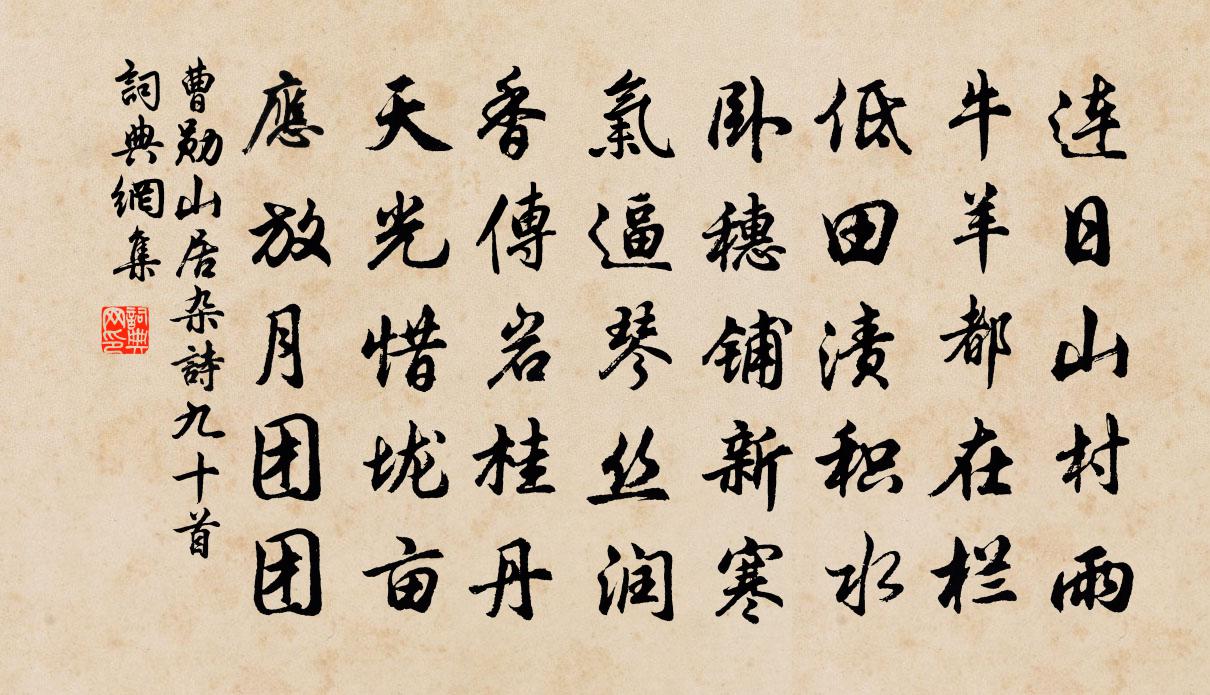 连日山村雨
牛羊都在栏
低田渍积水
卧穗铺新寒
氣逼琴丝润
香傳岩桂丹
天光惜垅亩
應放月团团
曹勋山居杂詩九十首
詞典網集
詞典
网印